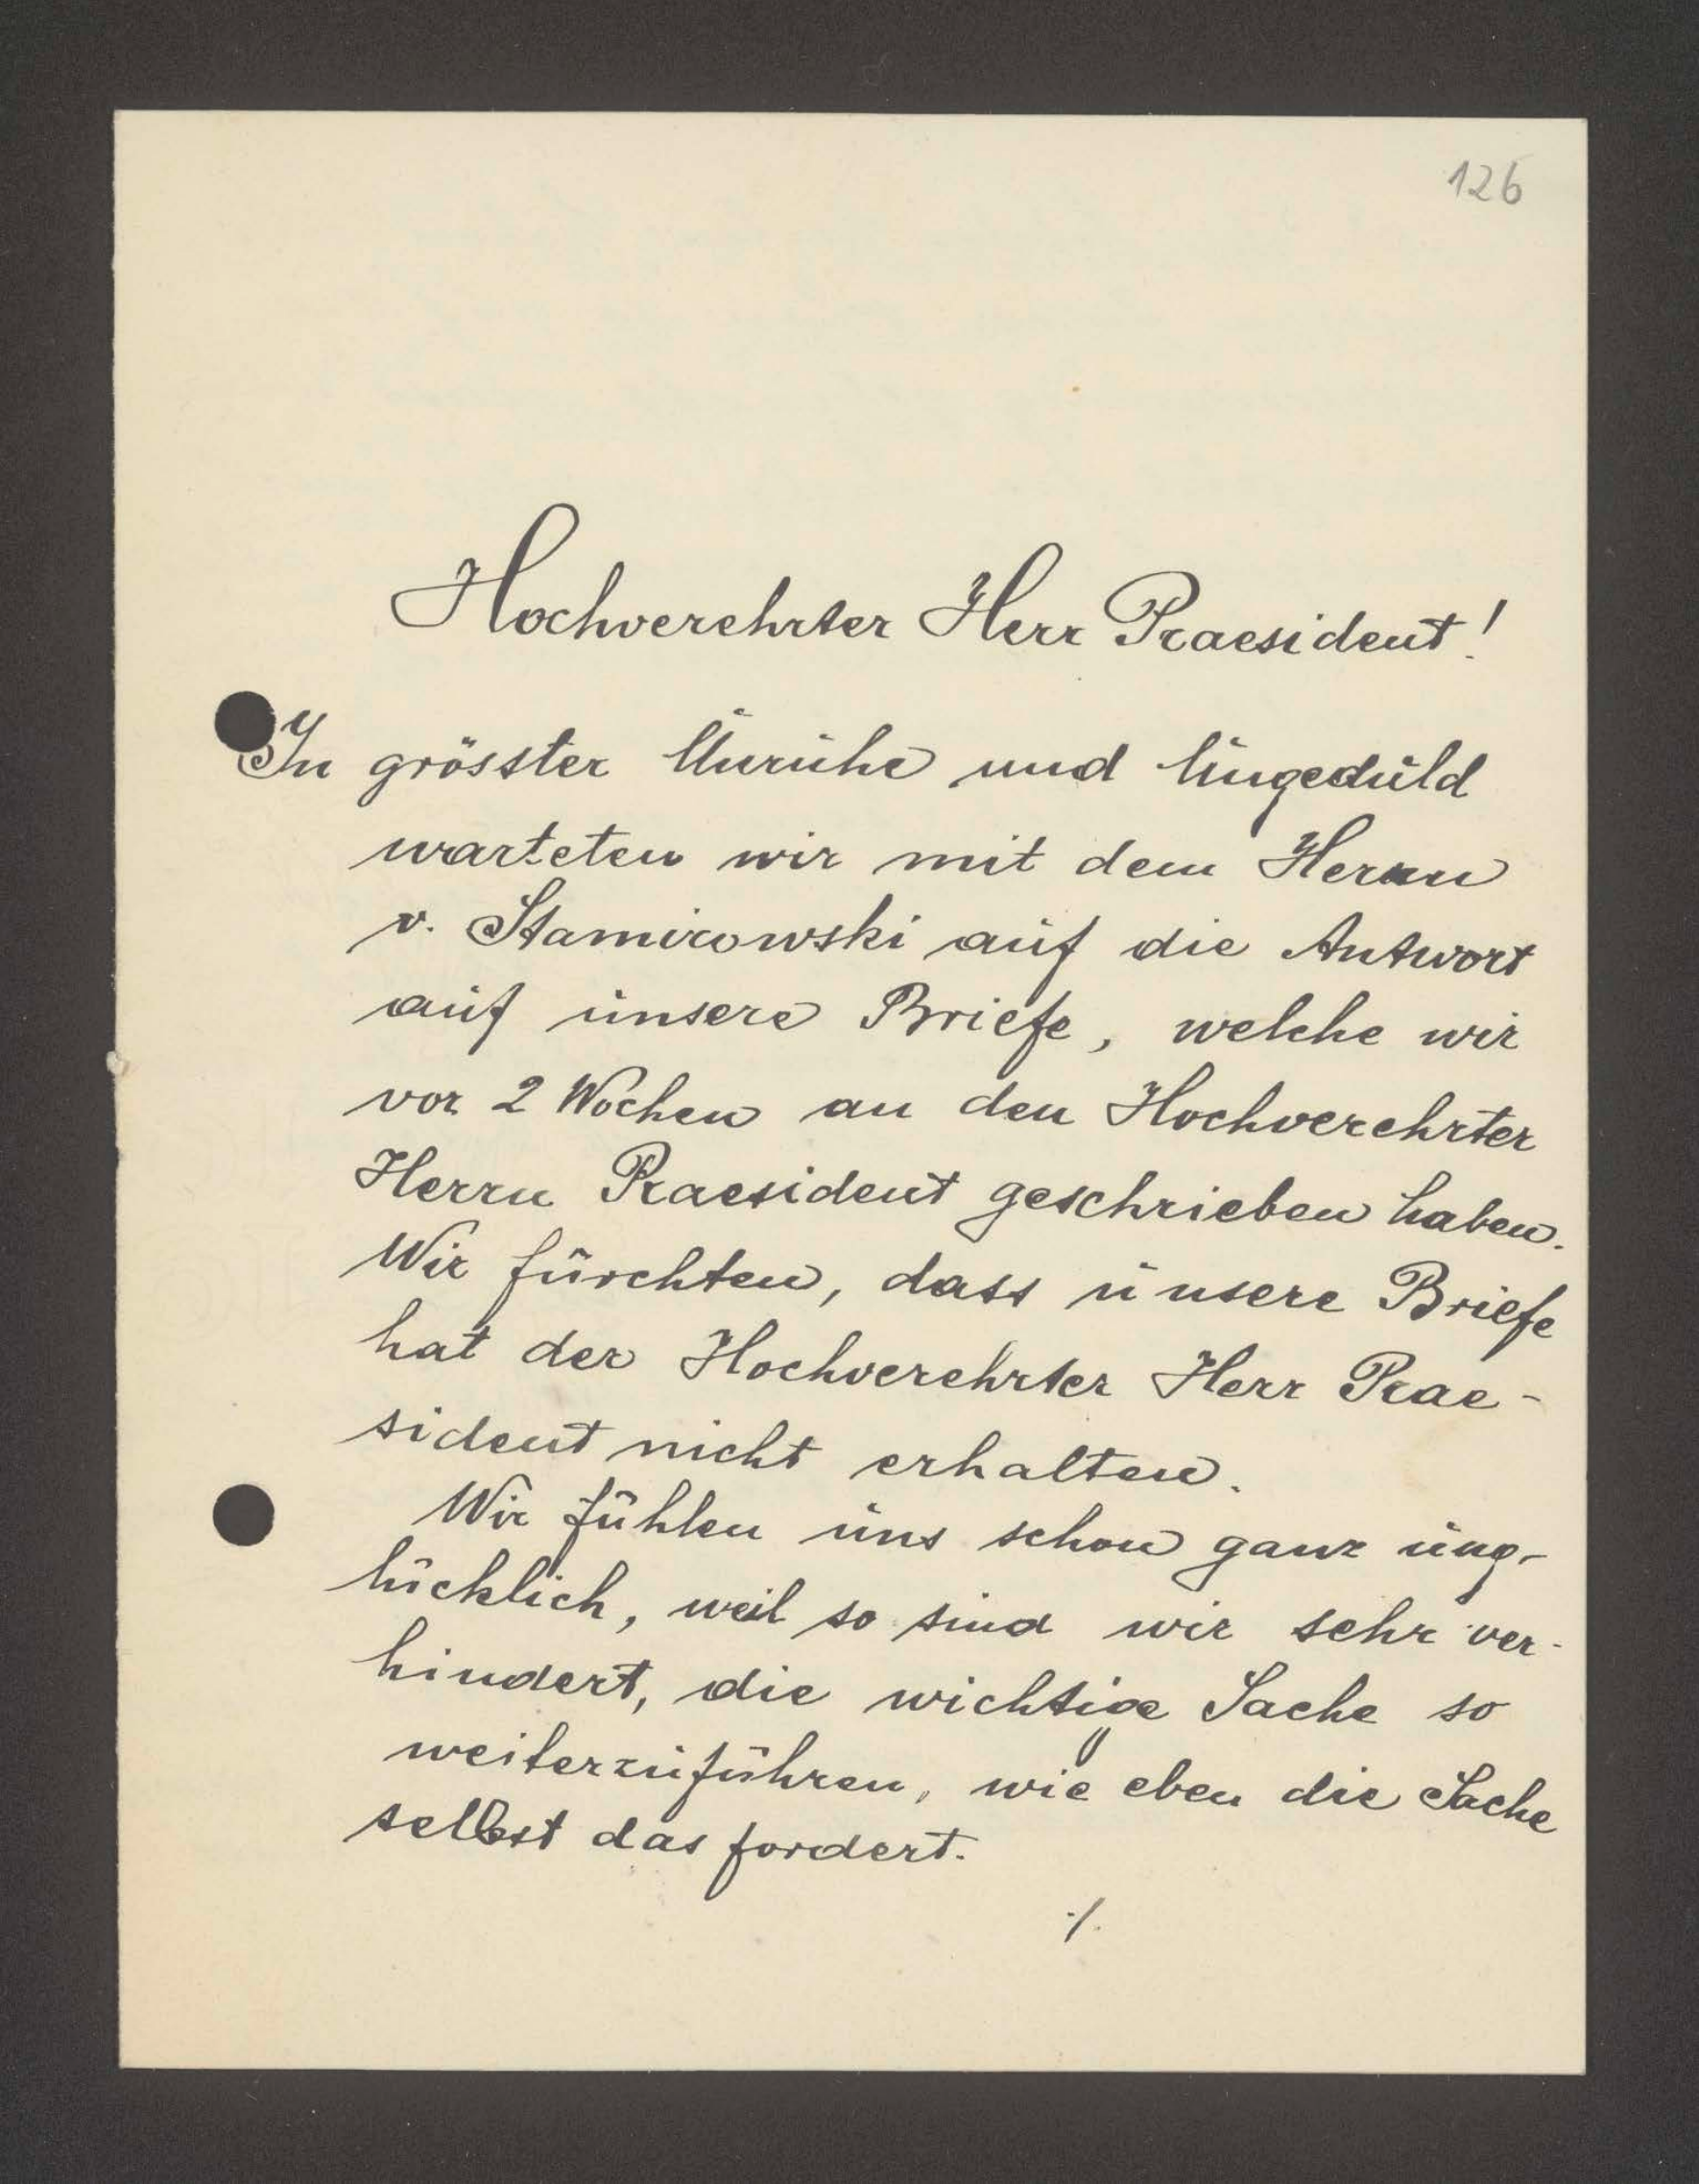 126
Hochverehrter Herr Praesident!
In grösster Unruhe und Ungeduld
warteten wir mit dem Herrn
v. Stamirowski auf die Antwort
auf unsere Briefe, welche wir
vor 2 Wochen an den Hochverehrter
Herrn Praesident geschrieben haben.
Wir fürchten, dass unsere Briefe
hat der Hochverehrter Herr Prae-
sident nicht erhalten.
Wir fühlen uns schon ganz ung-
lücklich, weil so sind wir sehr ver-
hindert, die wichtige Sache so
weiterzuführen, wie eben die Sache
selbst das fordert.
./.